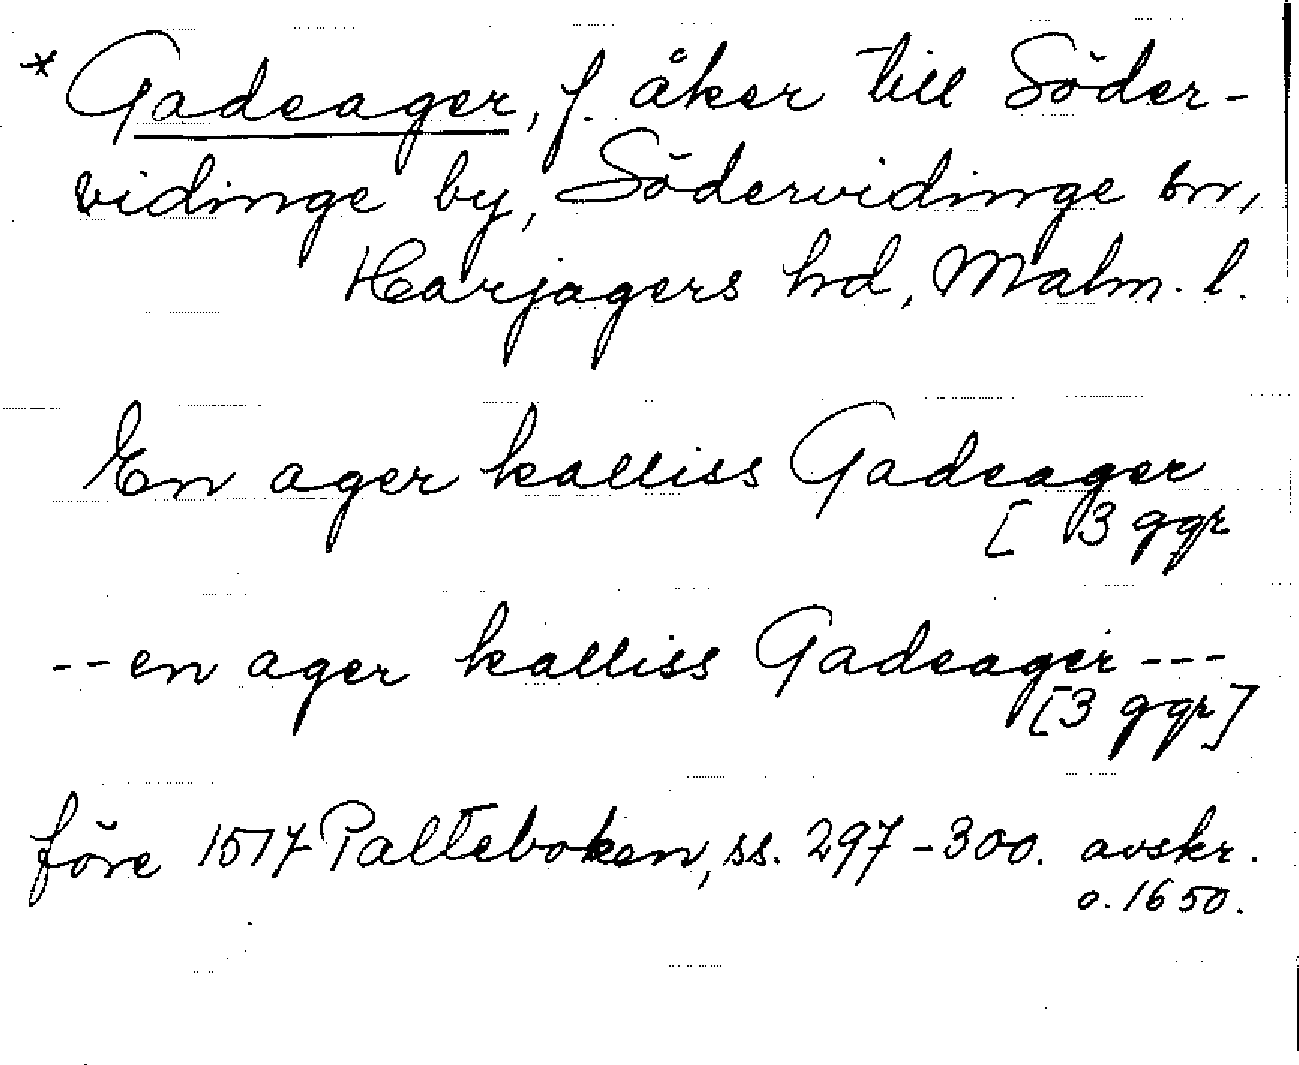 * Gadeager, f. åker till Söder-
vidinge by, Södervidinge sn,
Harjagers hd, Malm. l.
En ager kalliss Gadeager
[ 3 ggr
-- en ager kalliss Gadeager ---
[3 ggr]
före 1517 Palteboken, ss. 297-300. avskr.
o. 1650.